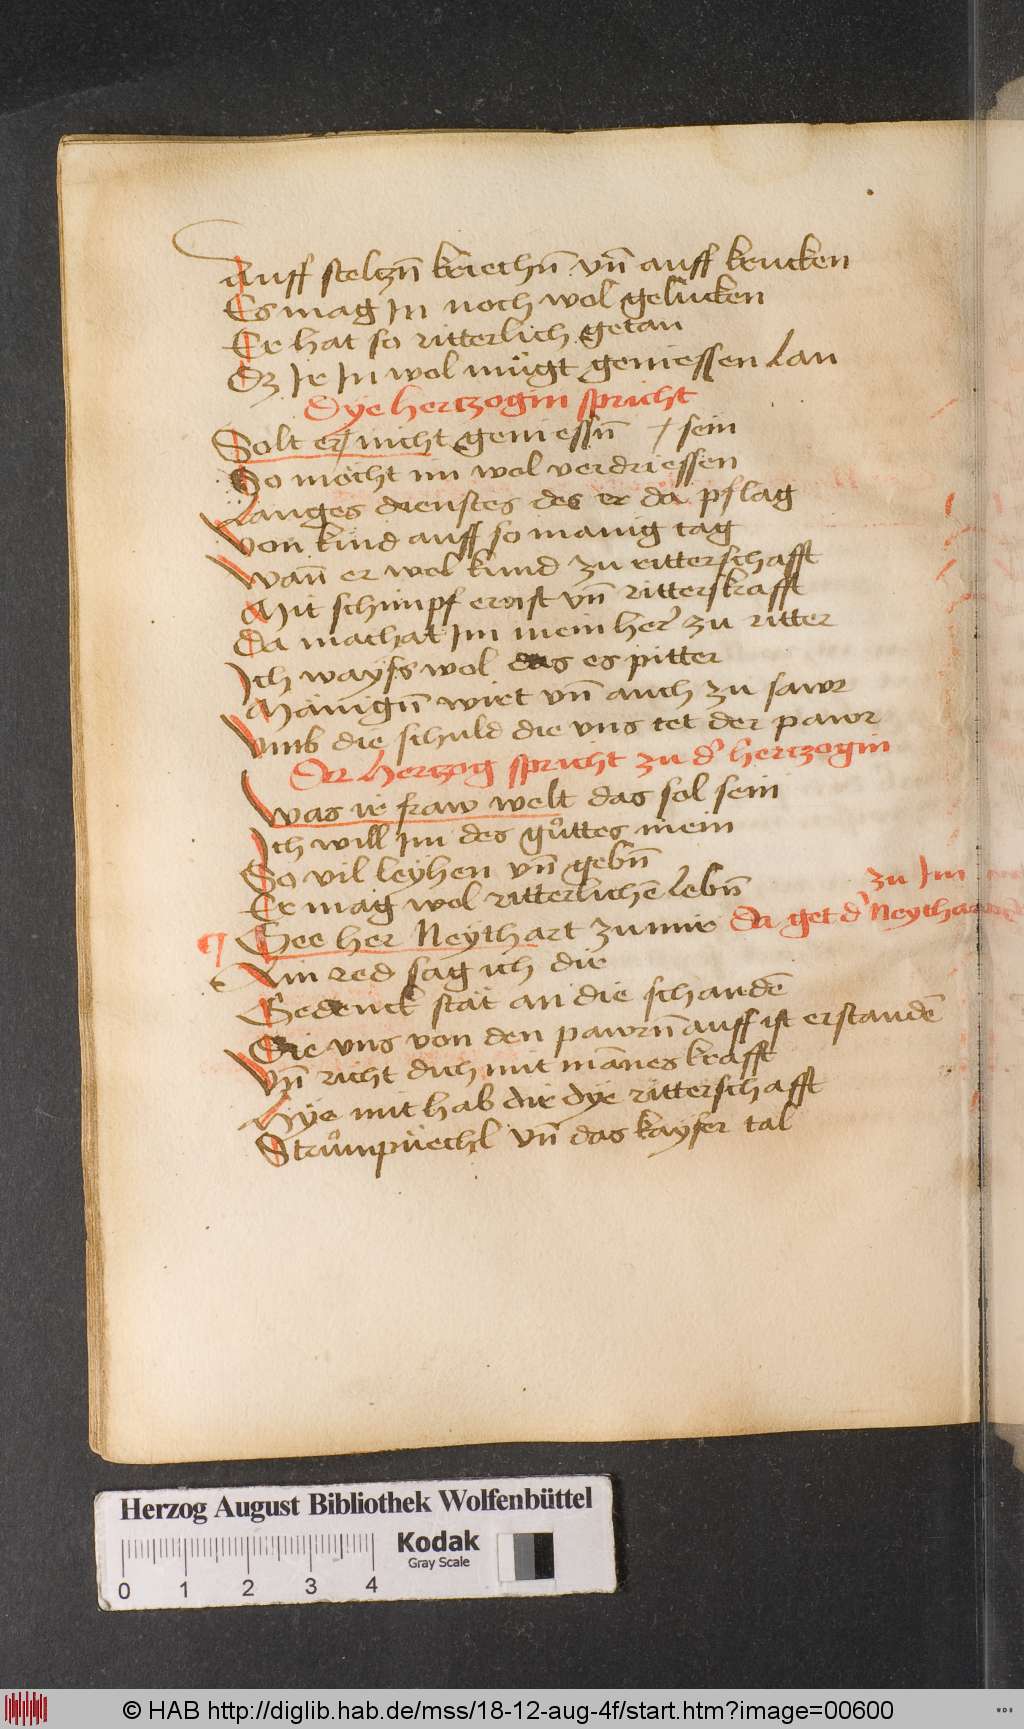 Auff stelczn̄ kriechn̄ vn̄ auff krucken
Es mag In noch wol gelucken
Er hat so ritterlich getan
Dz Ir In wol mügt geniessen Lan
Dye hertzogin spricht
Solt er / nicht geniessn̄ / sein
So möcht im wol verdriessen
Langes dienstes des er da pflag
Von kind auff so manig tag
Wan̄ er wol kund zu ritterschafft
Mit schimpf ernst vn̄ ritterskrafft
Da machat Im mein her' zu ritter
Ich wayss wol das es pitter
Mänign̄ wirt vn̄ auch zu sawr
Vmb die schuld die vns tet der pawr
Der hertzog spricht zu d' hertzogin
Was ir fraw welt das sol sein
Ich will Im des gůttes mein
So vil leyhen vn̄ gebn̄
Er mag wol ritterlichē Lebn̄
zu Im
Gee her Neythart zu mir Da get d' Neythart
Ain red sag ich dir
Gedenck stät an die schandē
Die vns von den pawrn̄ auff ist erstandē
Vn̄ richt dich mit mānes krafft
Hye mit hab dir dye ritterschafft
Strůmpüechl vn̄ das kayser tal
Herzog August Bibliothek Wolfenbüttel
Kodak
Gray Scale
0 1 2 3 4
© HAB http://diglib.hab.de/mss/18-12-aug-4f/start.htm?image=00600